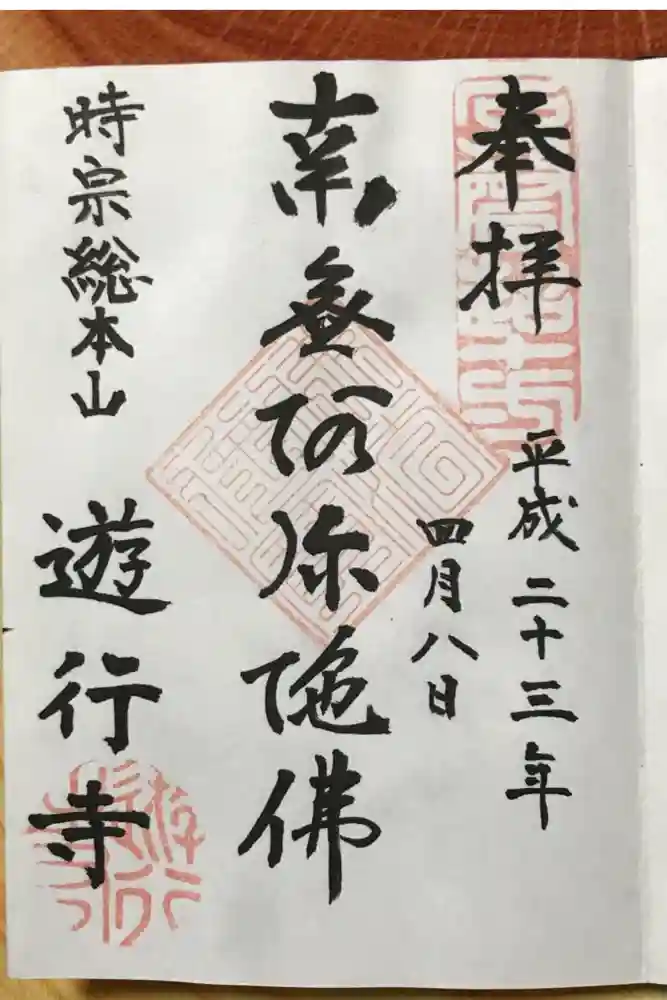 奉拝
平成二十三年
四月八日
南無阿弥陁佛
時宗総本山
遊行寺